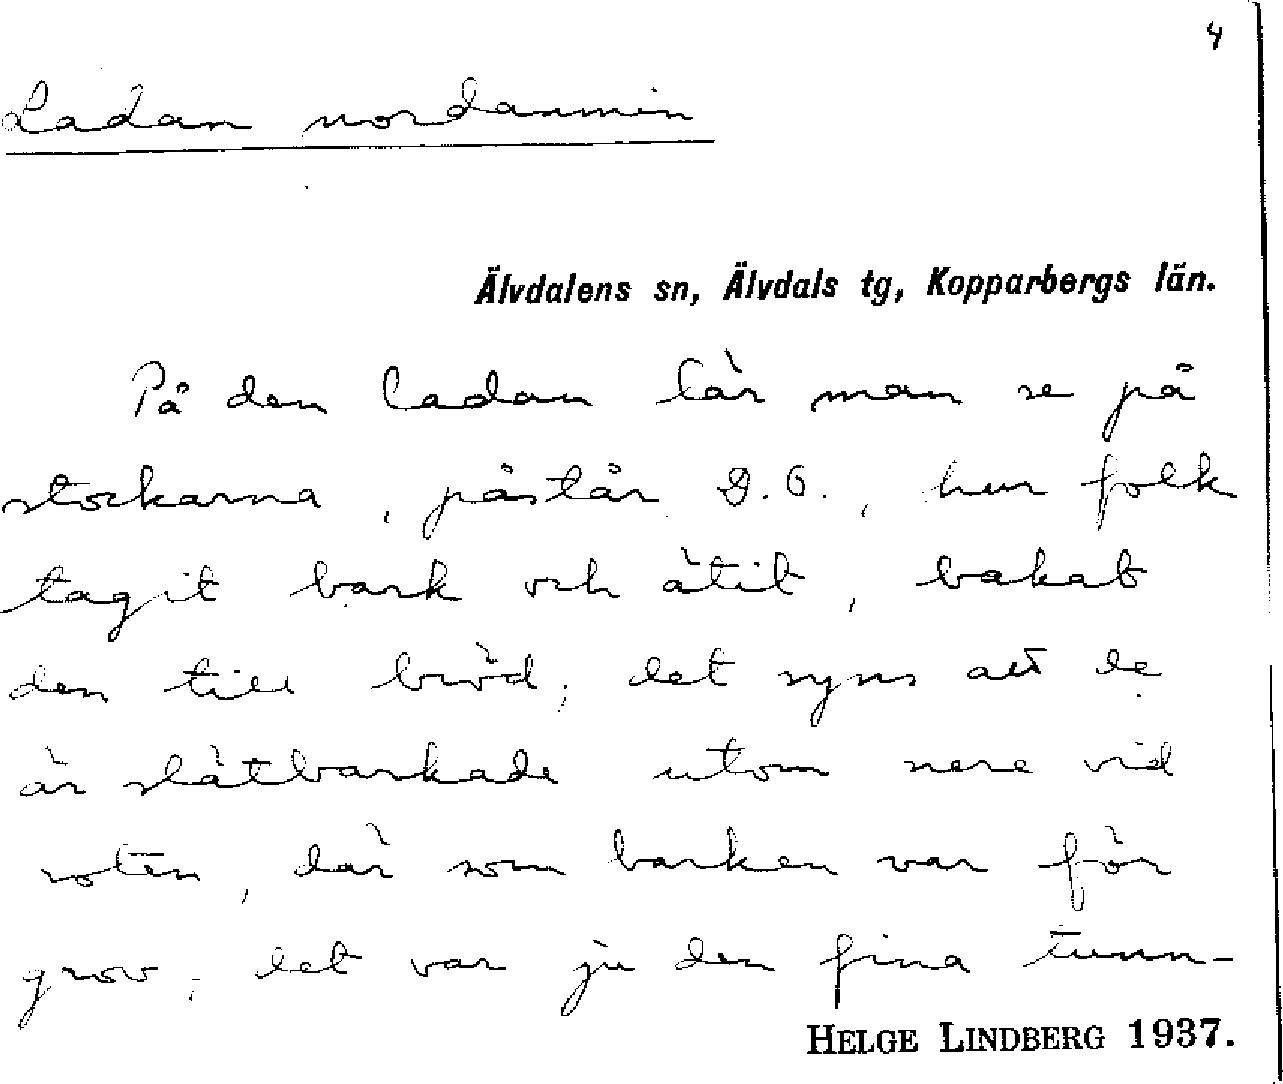 4
Ladan nordanmin
Älvdalens sn, Älvdals tg, Kopparbergs län.
På den ladan lär man se på
stockarna, påstår D.O., hur folk
tagit bark och ätit, bakat
den till bröd; det syns att de
är slätbarkade utom nere vid
roten, där som barken var för
grov; det var ju den fina tunn-
HELGE LINDBERG 1937.